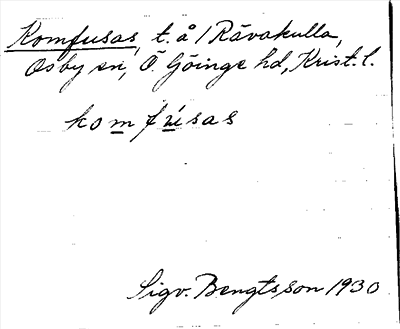 Komfusas, t. å / Råvakulla,
Osby sn, Ö. Göinge hd, Krist. l.
komfúsas
Sigv. Bengtsson 1930